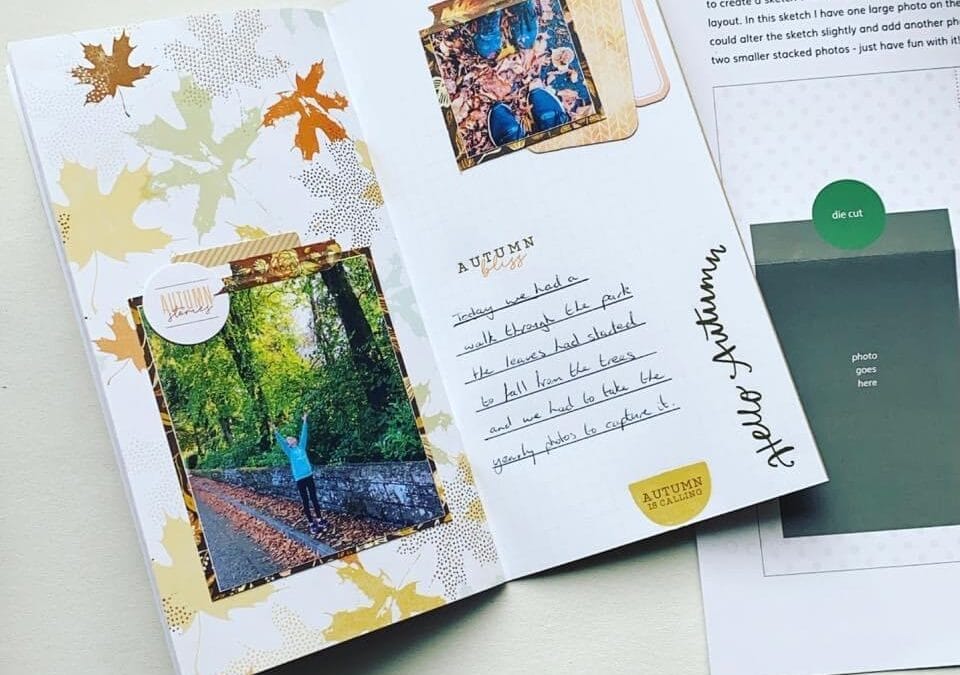 AUTUMN
stories
AUTUMN
bliss
Today we had a
walk through the park
the leaves had started
to fall from the trees
and we had to take the
yearly photos to capture it.
AUTUMN
IS CALLING
Hello Autumn
to create a sketch
layout. In this sketch I have one large photo on the
could alter the sketch slightly and add another
two smaller stacked photos - just have fun with it!
die cut
photo
goes
here